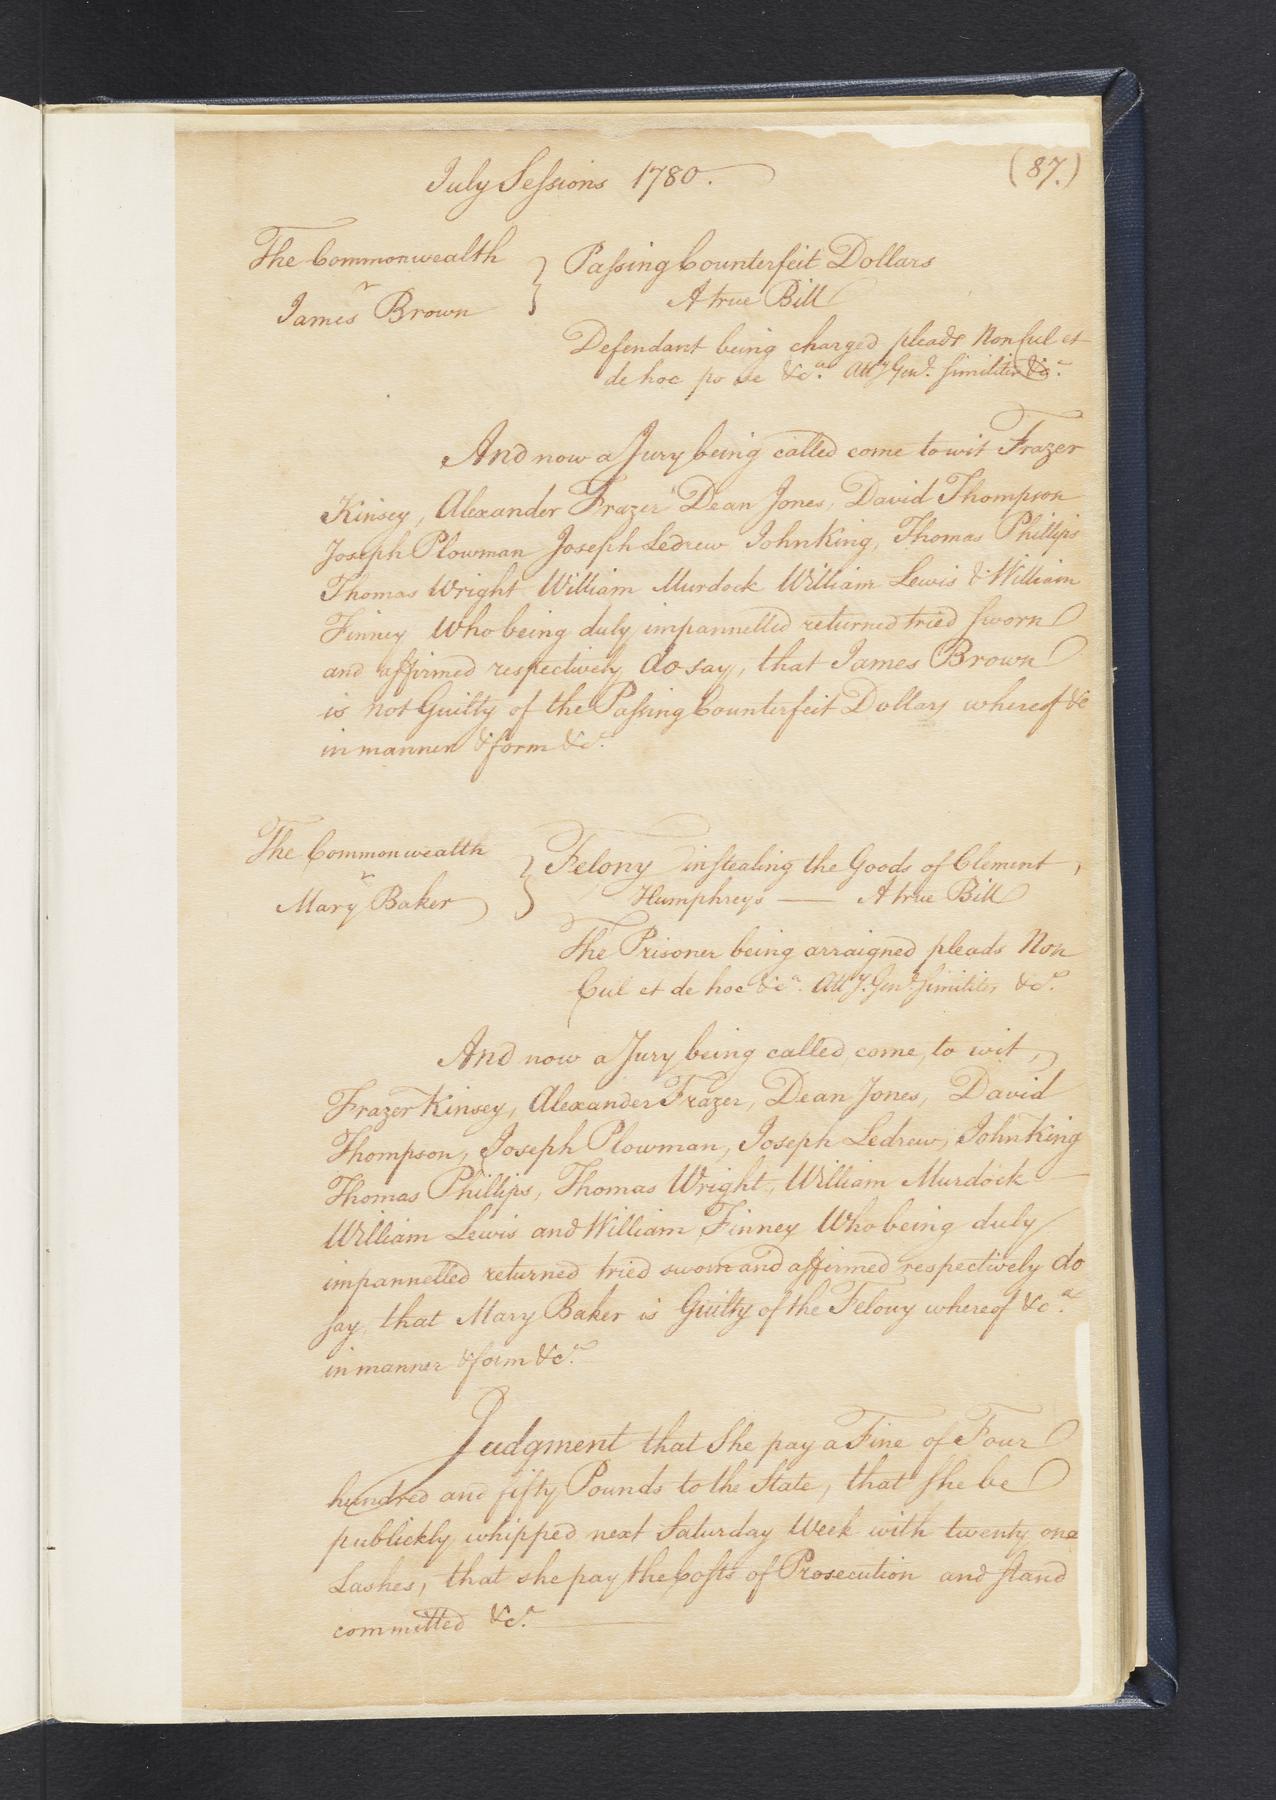 July Seſsions 1780.
(87.)
The Commonwealth
v
James Brown
Paſsing Counterfeit Dollars
A true Bill
Defendant being charged pleads Non Cul et
de hoc po se &cᵃ. Attʸ Genˡ. similiter &cᵃ.
And now a Jury being called come to wit Frazer
Kinsey, Alexander Frazer Dean Jones, David Thompson
Joseph Plowman Joseph Ledrew John King, Thomas Phillips
Thomas Wright William Murdock William Lewis & William
Finney Who being duly impannelled returned tried ſworn
and affirmed respectively do say, that James Brown
is not Guilty of the Paſsing Counterfeit Dollars whereof &c
in manner & form &cᵃ.
The Commonwealth
v
Mary Baker
Felony in ſtealing the Goods of Clement
Humphreys — A true Bill
The Prisoner being arraigned pleads Non
Cul et de hoc &cᵃ. Attʸ. Genˡ. ſimiliter &cᵃ.
And now a Jury being called, come, to wit,
Frazer Kinsey, Alexander Frazer, Dean Jones, David
Thompson, Joseph Plowman, Joseph Ledrew, John King
Thomas Phillips, Thomas Wright, William Murdock —
William Lewis and William Finney Who being duly
impannelled returned tried sworn and affirmed respectively do
ſay, that Mary Baker is Guilty of the Felony whereof &cᵃ.
in manner & form &cᵃ.
Judgment that She pay a Fine of Four
hundred and fifty Pounds to the State, that ſhe be
publickly whipped next Saturday Week with twenty one
Lashes, that she pay the Coſts of Prosecution and ſtand
committed &cᵃ.